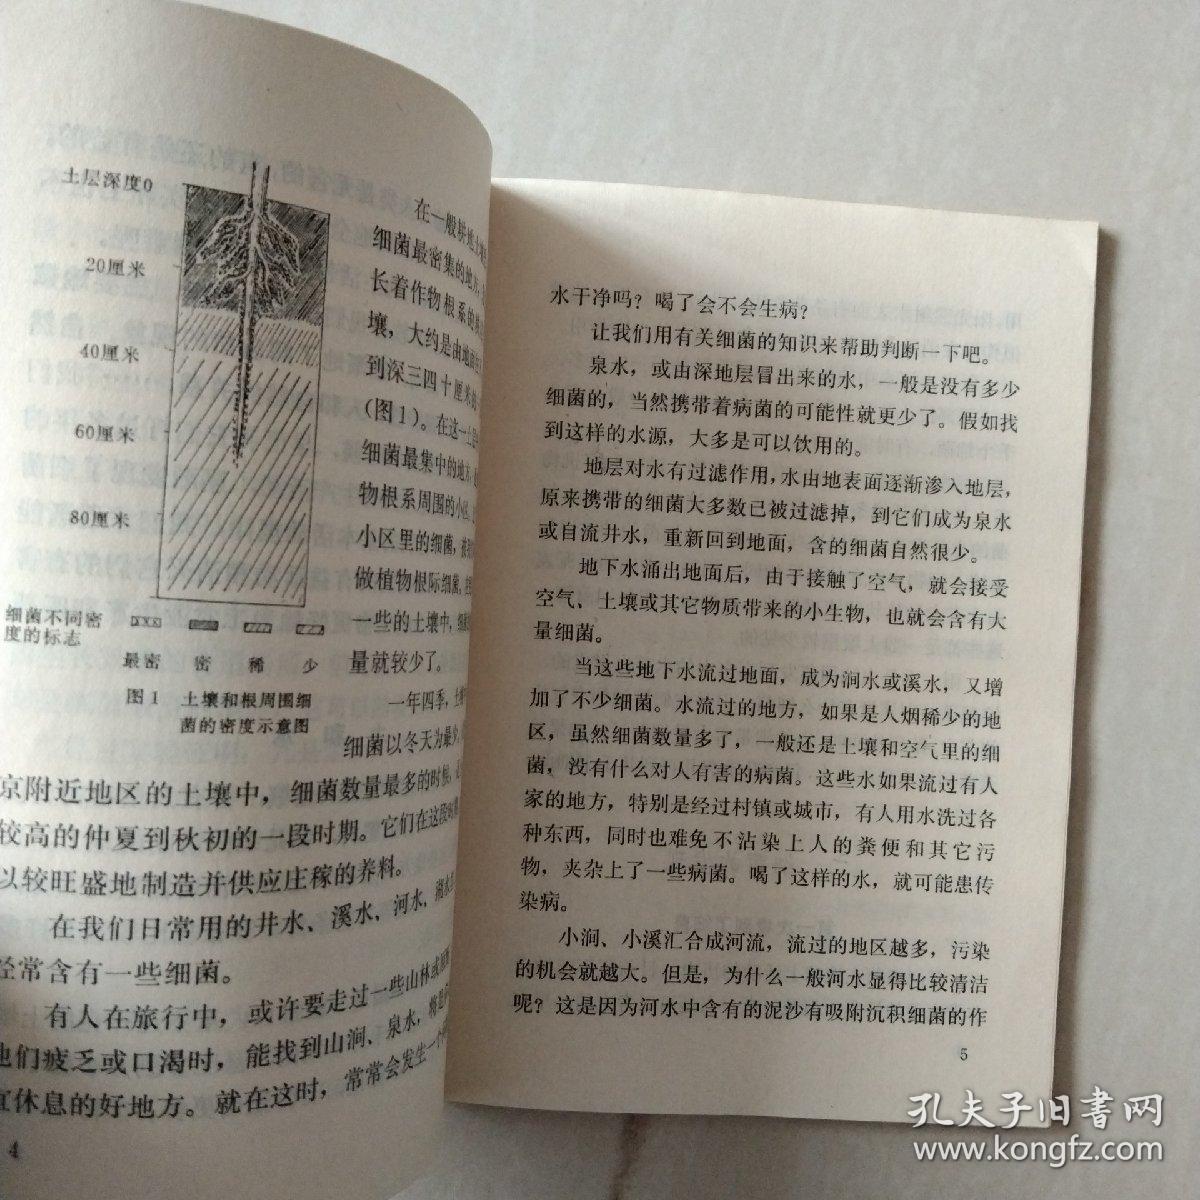 土层深度0
20厘米
40厘米
60厘米
80厘米
细菌不同密
度的标志
最密 密 稀 少
图1 土壤和根周围细
菌的密度示意图
在一般耕地土壤
细菌最密集的地方,
长着作物根系的
壤,大约是由地面
到深三四十厘米的
(图1)。在这一土层
细菌最集中的地方,
物根系周围的小区,
小区里的细菌,被
做植物根际细菌,
一些的土壤中,细菌
量就较少了。
一年四季,土壤
细菌以冬天为最少,
京附近地区的土壤中,细菌数量最多的时候,
较高的仲夏到秋初的一段时期。它们在这段时期
以较旺盛地制造并供应庄稼的养料。
在我们日常用的井水、溪水、河水、湖水
经常含有一些细菌。
有人在旅行中,或许要走过一些山林或
他们疲乏或口渴时,能找到山涧、泉水,将是
宜休息的好地方。就在这时,常常会发生一个
4
水干净吗?喝了会不会生病?
让我们用有关细菌的知识来帮助判断一下吧。
泉水,或由深地层冒出来的水,一般是没有多少
细菌的,当然携带着病菌的可能性就更少了。假如找
到这样的水源,大多是可以饮用的。
地层对水有过滤作用,水由地表面逐渐渗入地层,
原来携带的细菌大多数已被过滤掉,到它们成为泉水
或自流井水,重新回到地面,含的细菌自然很少。
地下水涌出地面后,由于接触了空气,就会接受
空气、土壤或其它物质带来的小生物,也就会含有大
量细菌。
当这些地下水流过地面,成为涧水或溪水,又增
加了不少细菌。水流过的地方,如果是人烟稀少的地
区,虽然细菌数量多了,一般还是土壤和空气里的细
菌,没有什么对人有害的病菌。这些水如果流过有人
家的地方,特别是经过村镇或城市,有人用水洗过各
种东西,同时也难免不沾染上人的粪便和其它污
物,夹杂上了一些病菌。喝了这样的水,就可能患传
染病。
小涧、小溪汇合成河流,流过的地区越多,污染
的机会就越大。但是,为什么一般河水显得比较清洁
呢?这是因为河水中含有的泥沙有吸附沉积细菌的作
5
孔夫子旧书网
www.kongfz.com